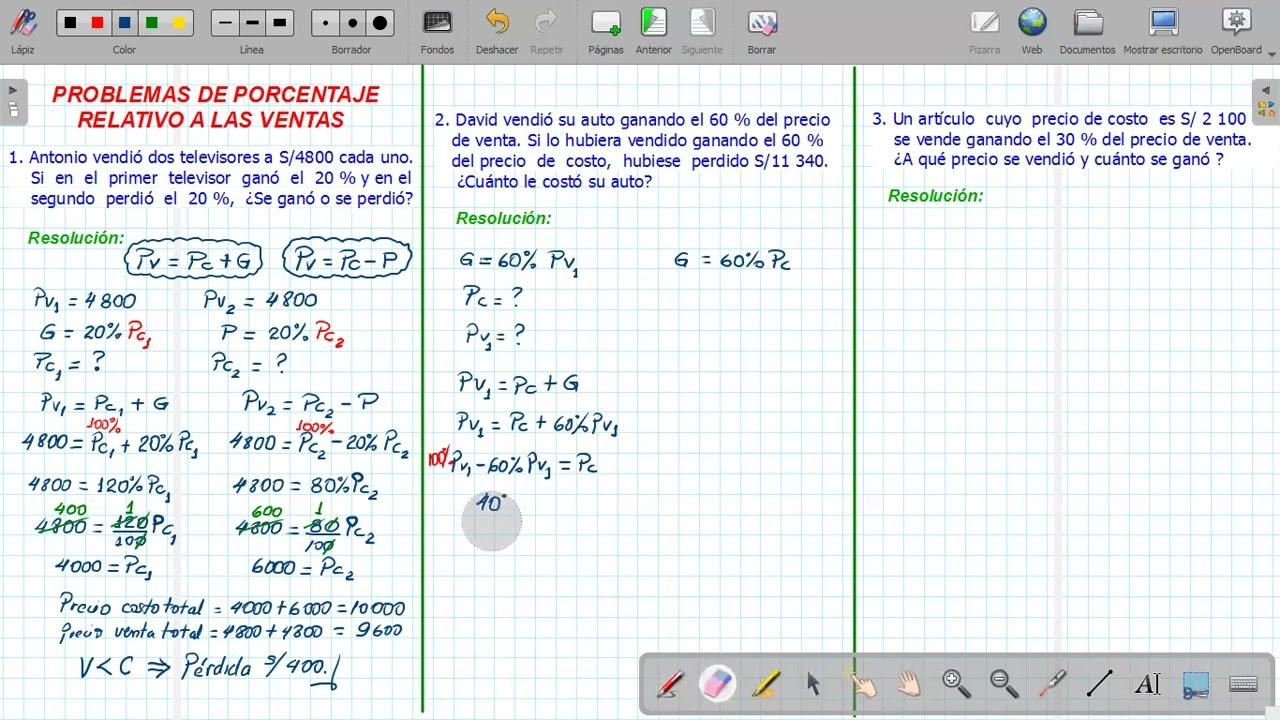 Lápiz Color Línea Borrador Fondos Deshacer Repetir Páginas Anterior Siguiente Borrar Pizarra Web Documentos Mostrar escritorio OpenBoard
PROBLEMAS DE PORCENTAJE
RELATIVO A LAS VENTAS
1. Antonio vendió dos televisores a S/4800 cada uno.
Si en el primer televisor ganó el 20 % y en el
segundo perdió el 20 %, ¿Se ganó o se perdió?
Resolución:
Pv = Pc + G Pv = Pc - P
Pv₁ = 4800 Pv₂ = 4800
G = 20% Pc₁ P = 20% Pc₂
Pc₁ = ? Pc₂ = ?
Pv₁ = Pc₁ + G Pv₂ = Pc₂ - P
100% 100%
4800 = Pc₁ + 20% Pc₁ 4800 = Pc₂ - 20% Pc₂
4800 = 120% Pc₁ 4800 = 80% Pc₂
400 1 600 1
4800 = 120/100 Pc₁ 4800 = 80/100 Pc₂
4000 = Pc₁ 6000 = Pc₂
Precio costo total = 4000 + 6000 = 10000
Precio venta total = 4800 + 4800 = 9600
V < C ⇒ Pérdida S/400.
2. David vendió su auto ganando el 60 % del precio
de venta. Si lo hubiera vendido ganando el 60 %
del precio de costo, hubiese perdido S/11 340.
¿Cuánto le costó su auto?
Resolución:
G = 60% Pv₁ G = 60% Pc
Pc = ?
Pv₁ = ?
Pv₁ = Pc + G
Pv₁ = Pc + 60% Pv₁
100% Pv₁ - 60% Pv₁ = Pc
40
3. Un artículo cuyo precio de costo es S/ 2 100
se vende ganando el 30 % del precio de venta.
¿A qué precio se vendió y cuánto se ganó ?
Resolución: